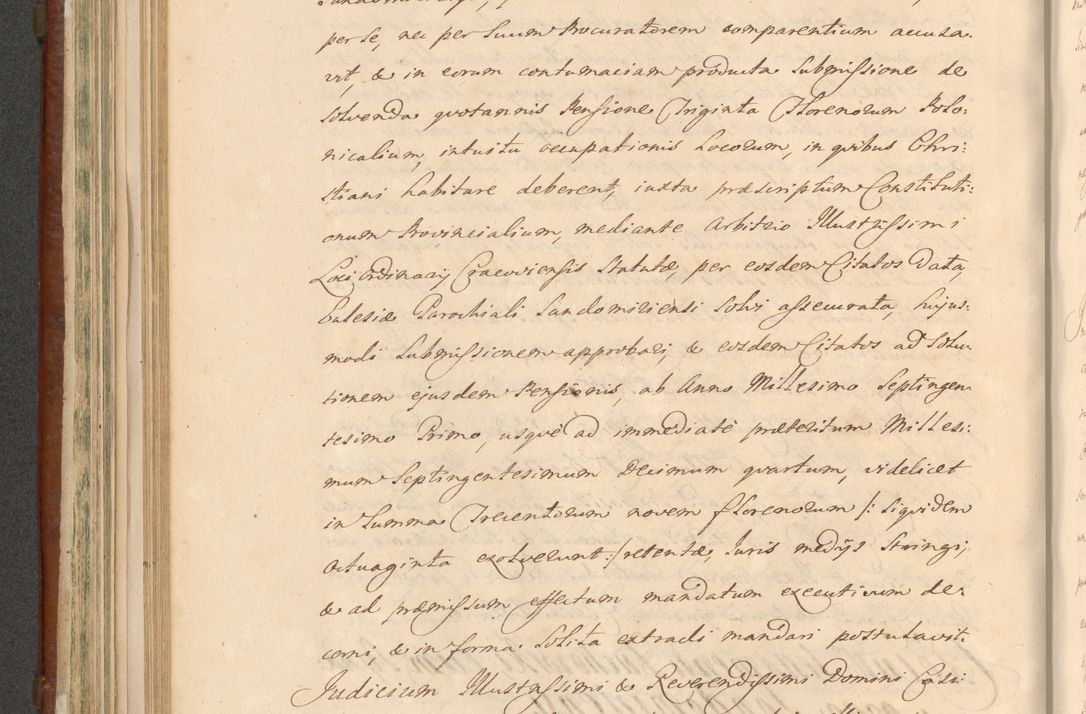 per se, nec per Suum Procuratorem comparentium accusa-
vit, & in eorum contumaciam producta Submissione de
Solvenda quotannis Pensione Triginta Florenorum Polo:
nicalium, intuitu occupationis Locorum, in quibus Chri:
stiani habitare deberent, iuxta præscriptum Constituti:
onum Provincialium, mediante Arbitrio Illustrissimi
Loci Ordinarij Cracoviensis Statutæ, per eosdem Citatos Data,
Ecclesiæ Parochiali Sandomiriensi Solvi assecurata, hujus-
modi Submissionem approbari, & eosdem Citatos ad Solu-
tionem ejusdem Pensionis, ab Anno Millesimo Septingen-
tesimo Primo, usque ad immediatè præteritum Millesi:
mum Septingentesimum Decimum quartum, videlicet
in Summa Trecentorum novem florenorum /: Siquidem
octuaginta exolverunt :/ retentæ, Juris medijs Stringi,
& ad præmissum effectum mandatum executivum de-
cerni, & in forma Solita extradi mandari postulavit.
Judicium Illustrissimi & Reverendissimi Domini Casi: